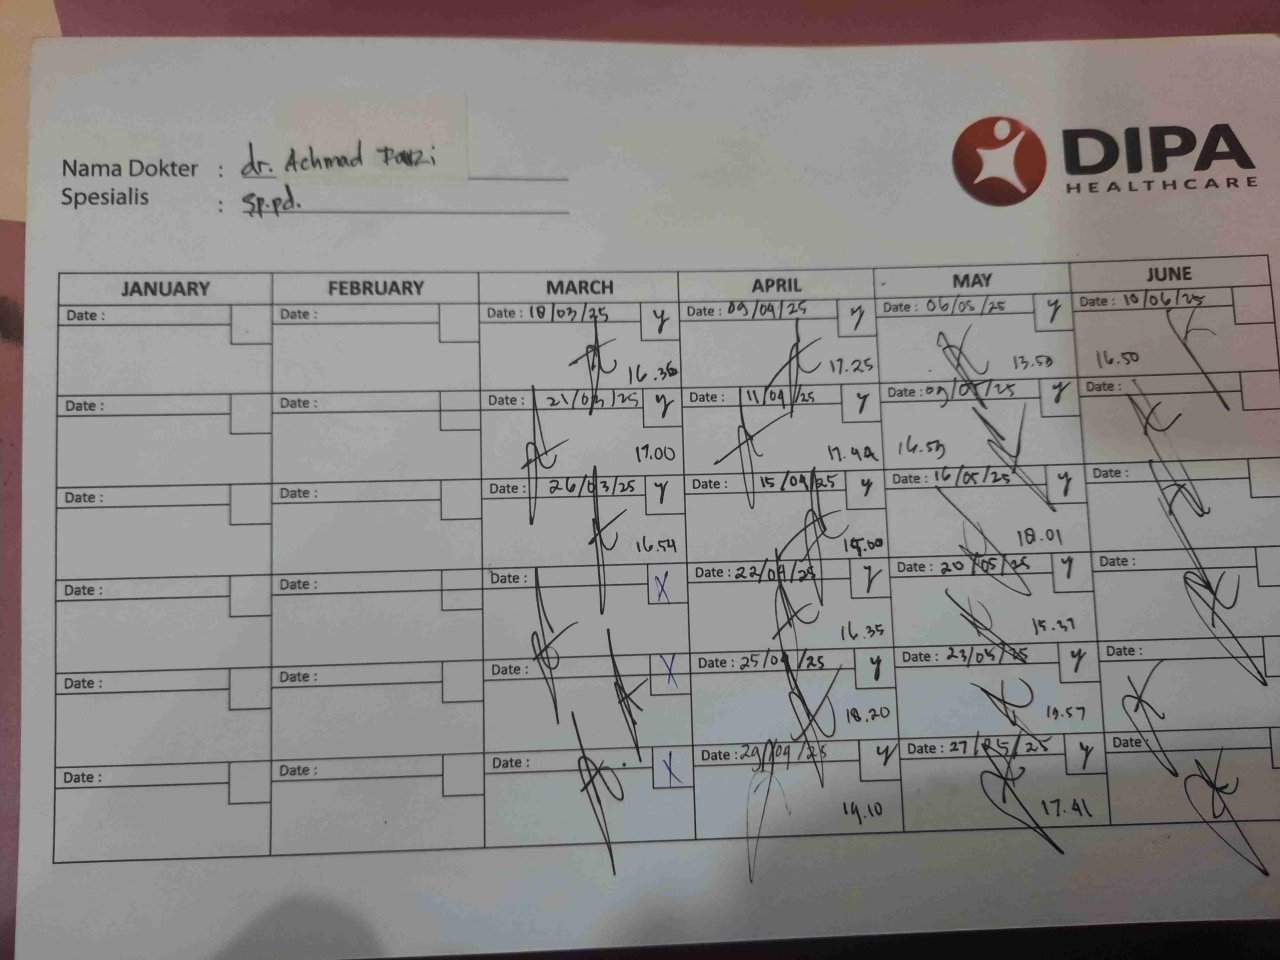 DIPA
HEALTHCARE
Nama Dokter : dr. Achmad Fauzi
Spesialis : Sp.pd.
JANUARY FEBRUARY MARCH APRIL MAY JUNE
Date : Date : Date : 18/03/25 y Date : 09/04/25 y Date : 06/05/25 y Date : 10/06/25
16.36 17.25 13.50 16.50
Date : Date : Date : 21/03/25 y Date : 11/04/25 y Date : 09/05/25 y Date :
17.00 17.42 16.53
Date : Date : Date : 26/03/25 y Date : 15/04/25 y Date : 16/05/25 y Date :
16.54 18.01
Date : Date : Date : X Date : 22/04/25 y Date : 20/05/25 y Date :
16.35 15.37
Date : Date : Date : X Date : 25/04/25 y Date : 23/05/25 y Date :
18.20 19.57
Date : Date : Date : X Date : 29/04/25 y Date : 27/05/25 y Date
19.10 17.41